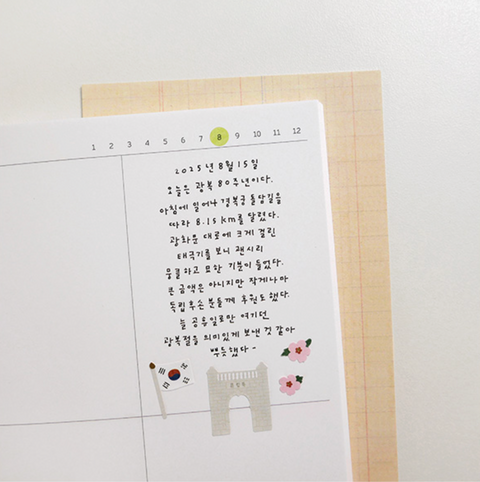 1 2 3 4 5 6 7 8 9 10 11 12
2025년 8월 15일
오늘은 광복 80주년이다.
아침에 일어나 경복궁 돌담길을
따라 8.15 km를 달렸다.
광화문 대로에 크게 걸린
태극기를 보니 괜시리
뭉클하고 묘한 기분이 들었다.
큰 금액은 아니지만 작게나마
독립후손 분들께 후원도 했다.
늘 공휴일로만 여기던
광복절을 의미있게 보낸 것 같아
뿌듯했다~